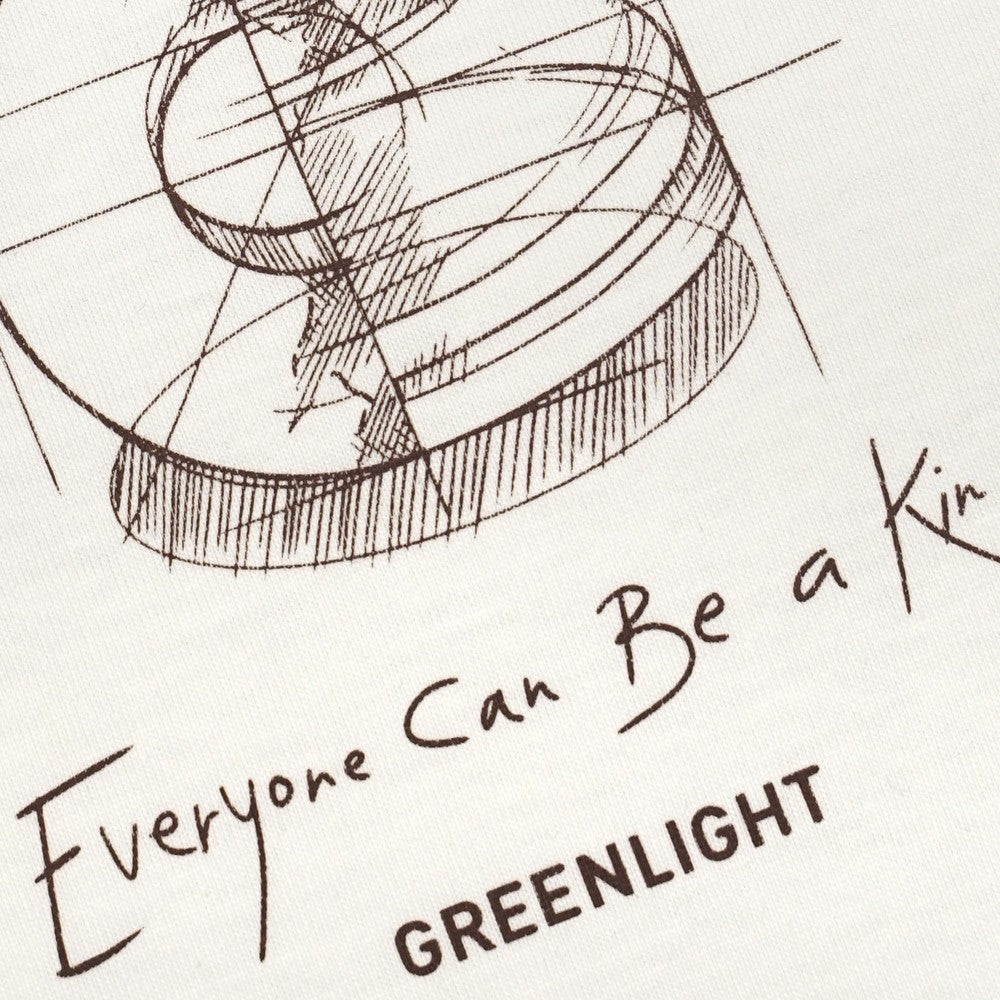 Everyone Can Be a Kin
GREENLIGHT